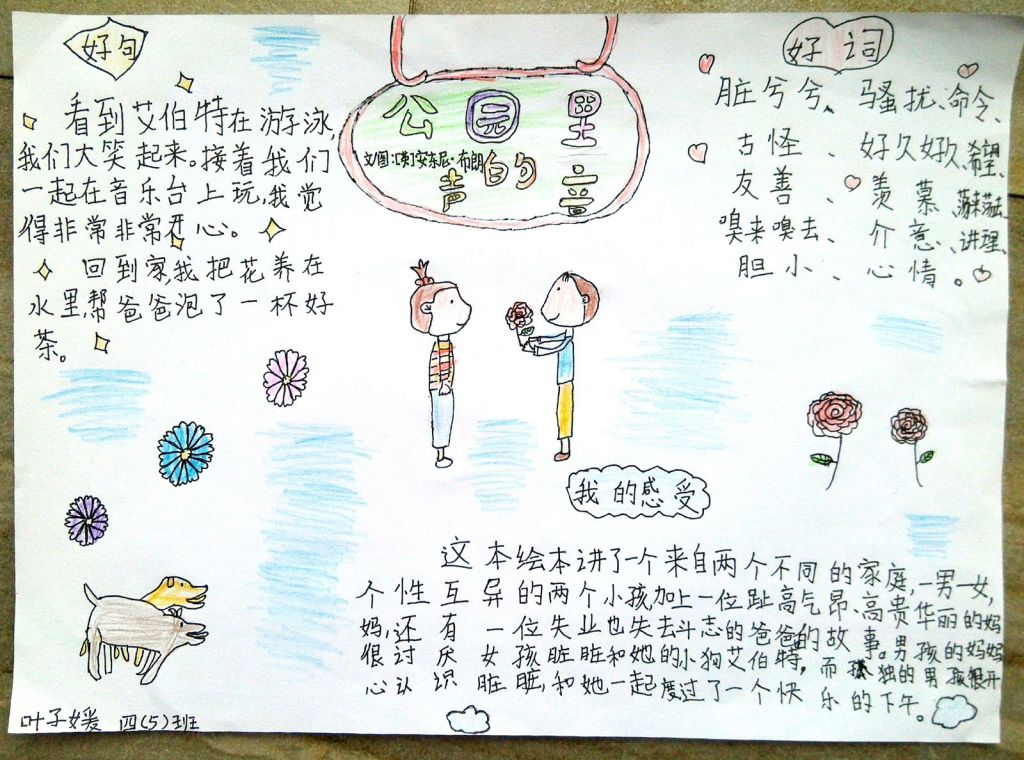 好句
看到艾伯特在游泳,
我们大笑起来。接着我们
一起在音乐台上玩,我觉
得非常非常开心。
回到家,我把花养在
水里,帮爸爸泡了一杯好
茶。
公园里
文/图:[英]安东尼·布朗
的
声音
好词
脏兮兮、骚扰、命令、
古怪、好久好久、希望、
友善、羡慕、荡来荡去、
嗅来嗅去、介意、讲理、
胆小、心情。
我的感受
这本绘本讲了一个来自两个不同的家庭,一男一女,
个性互异的两个小孩,加上一位趾高气昂、高贵华丽的妈
妈,还有一位失业也失去斗志的爸爸的故事。男孩的妈妈
很讨厌女孩脏脏和她的小狗艾伯特,而孤独的男孩很开
心认识脏脏,和她一起度过了一个快乐的下午。
叶子媛 四(5)班